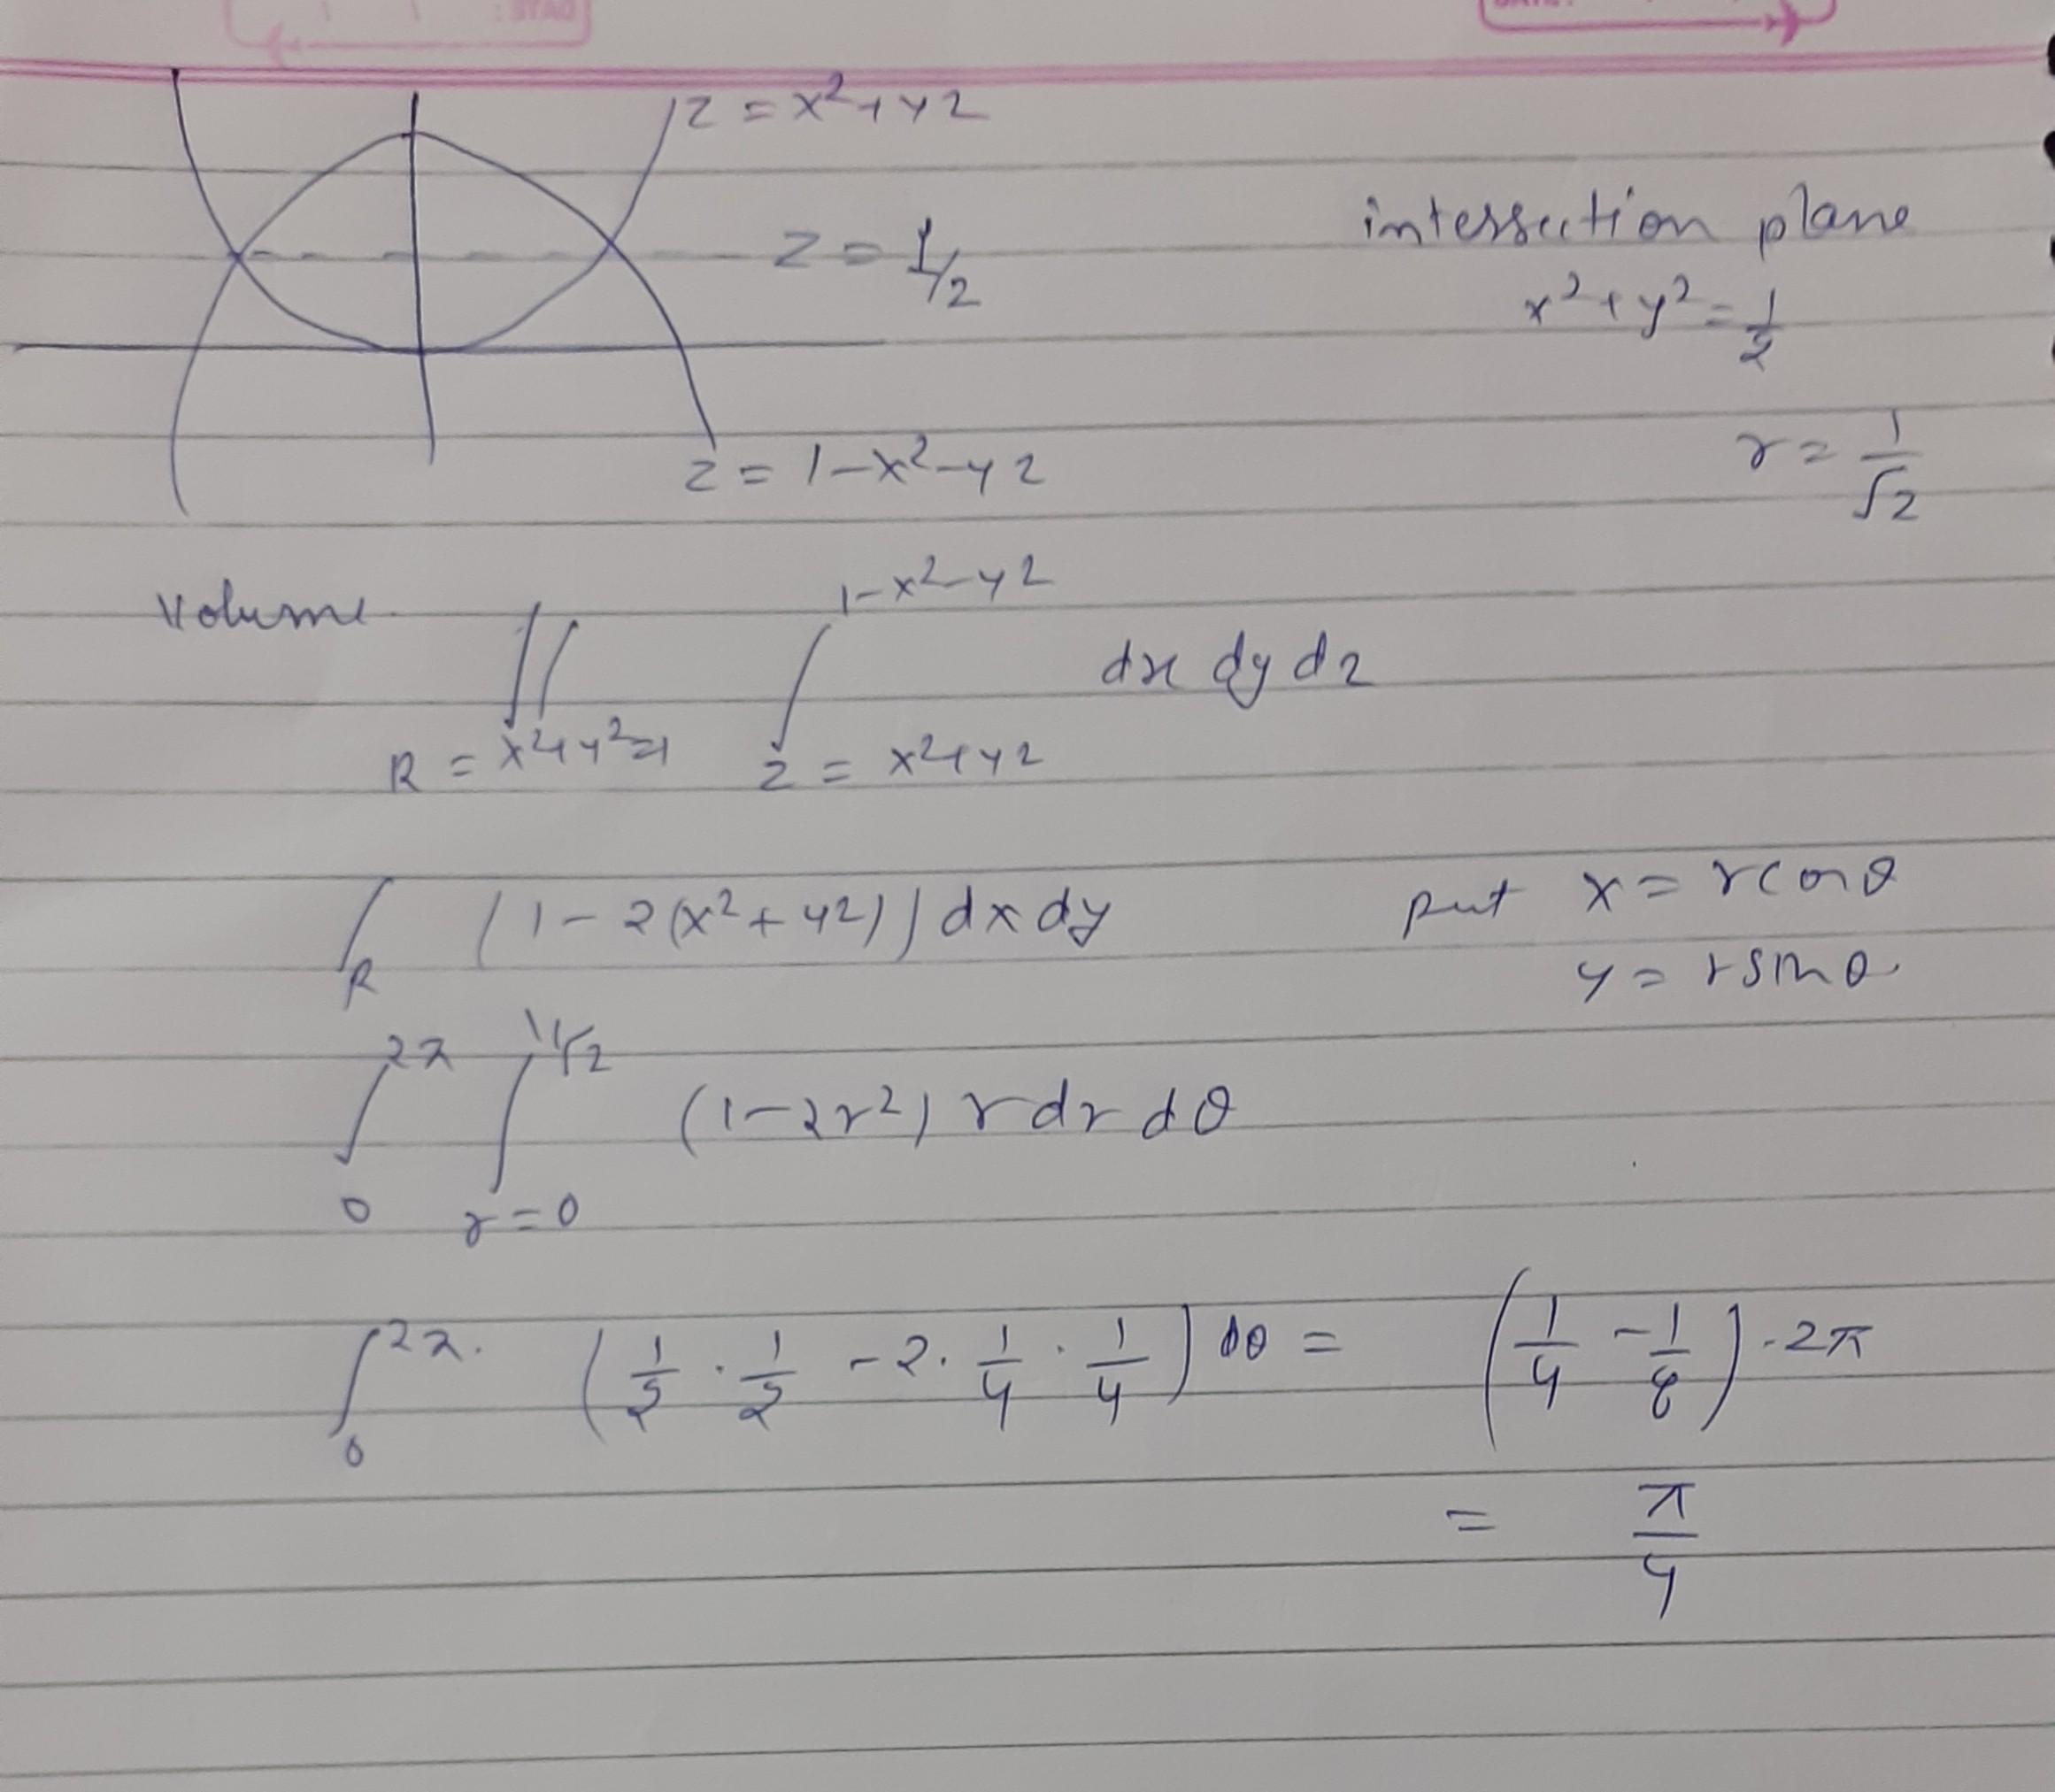 z = x² + y²
z = 1/2
intersection plane
x² + y² = 1/2
r = 1/√2
z = 1 - x² - y²
Volume ∬_{R = x² + y² = 1} ∫_{z = x² + y²}^{1 - x² - y²} dx dy dz
∫_R (1 - 2(x² + y²)) dx dy put x = r cos θ
y = r sin θ
∫_0^{2π} ∫_{r = 0}^{1/√2} (1 - 2r²) r dr dθ
∫_0^{2π} (1/2 · 1/2 - 2 · 1/4 · 1/4) dθ = (1/4 - 1/8) · 2π
= π/4